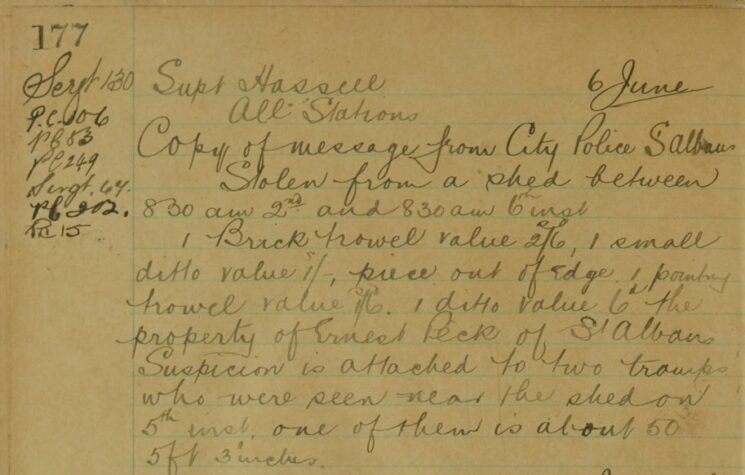 177
Sergt 130
P.C. 106
PC 83
PC 249
Sergt. 64.
PC 202.
PC 15
Supt Hassell 6 June
All Stations
Copy of message from City Police St Albans
Stolen from a shed between
8 30 am 2nd and 8 30 am 6th inst
1 Brick trowel value 2/6, 1 small
ditto value 1/-, piece out of edge. 1 pointing
trowel value /6. 1 ditto value 6d the
property of Ernest Peck of St Albans
Suspicion is attached to two tramps
who were seen near the shed on
5th inst. one of them is about 50
5ft 3 inches.